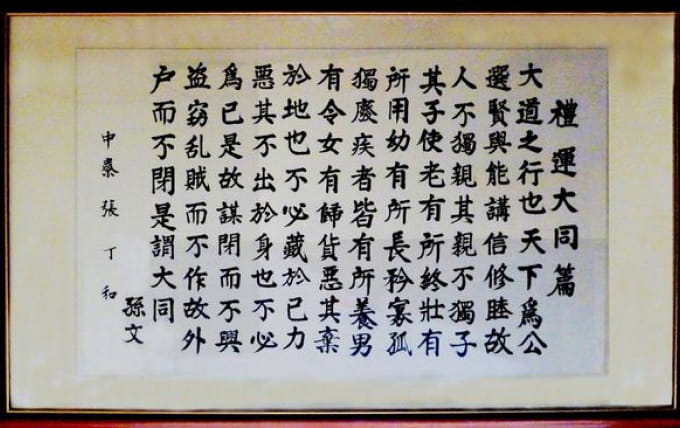 禮運大同篇
大道之行也天下爲公
選賢與能講信修睦故
人不獨親其親不獨子
其子使老有所終壯有
所用幼有所長矜寡孤
獨廢疾者皆有所養男
有令女有歸貨惡其棄
於地也不必藏於己力
惡其不出於身也不必
爲已是故謀閉而不興
盜竊乱賊而不作故外
户而不閉是謂大同
孫文
中秦張丁和